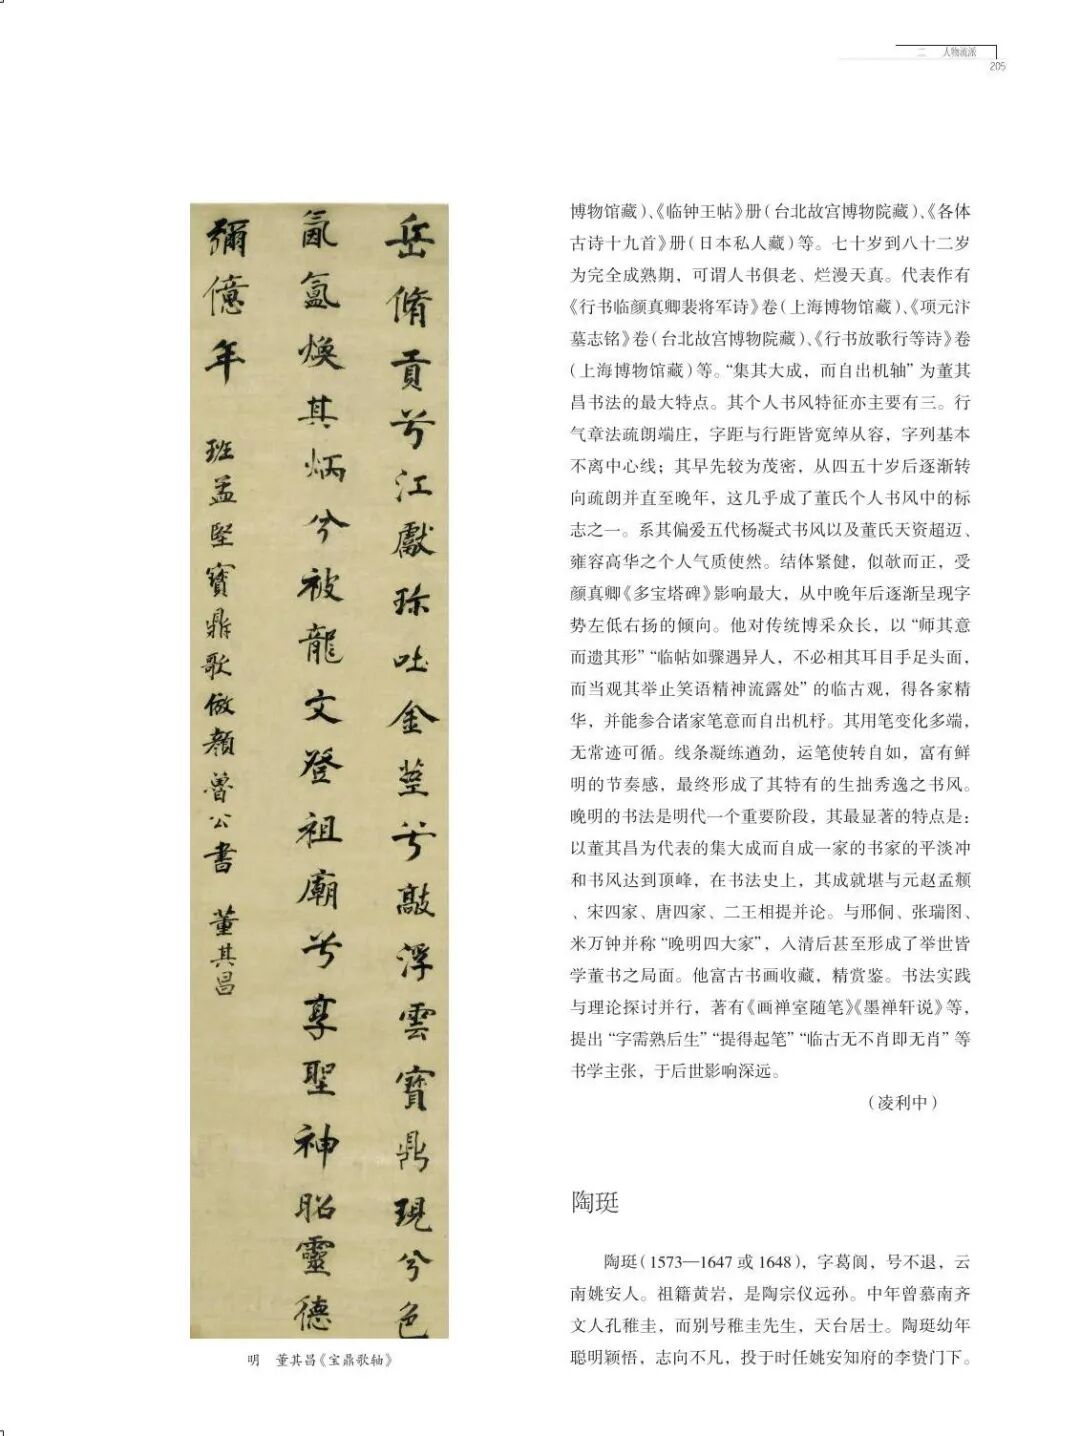 二 人物流派
205
岳脩貢兮江獻珎吐金莖兮敲浮雲寶鼎現兮色
氤氳煥其炳兮被龍文登祖廟兮享聖神昭靈德
彌億年
班孟堅寶鼎歌倣顏魯公書 董其昌
明 董其昌《宝鼎歌轴》
博物馆藏）、《临钟王帖》册（台北故宫博物院藏）、《各体
古诗十九首》册（日本私人藏）等。七十岁到八十二岁
为完全成熟期，可谓人书俱老、烂漫天真。代表作有
《行书临颜真卿裴将军诗》卷（上海博物馆藏）、《项元汴
墓志铭》卷（台北故宫博物院藏）、《行书放歌行等诗》卷
（上海博物馆藏）等。“集其大成，而自出机轴”为董其
昌书法的最大特点。其个人书风特征亦主要有三。行
气章法疏朗端庄，字距与行距皆宽绰从容，字列基本
不离中心线；其早先较为茂密，从四五十岁后逐渐转
向疏朗并直至晚年，这几乎成了董氏个人书风中的标
志之一。系其偏爱五代杨凝式书风以及董氏天资超迈、
雍容高华之个人气质使然。结体紧健，似欹而正，受
颜真卿《多宝塔碑》影响最大，从中晚年后逐渐呈现字
势左低右扬的倾向。他对传统博采众长，以“师其意
而遗其形”“临帖如骤遇异人，不必相其耳目手足头面，
而当观其举止笑语精神流露处”的临古观，得各家精
华，并能参合诸家笔意而自出机杼。其用笔变化多端，
无常迹可循。线条凝练遒劲，运笔使转自如，富有鲜
明的节奏感，最终形成了其特有的生拙秀逸之书风。
晚明的书法是明代一个重要阶段，其最显著的特点是：
以董其昌为代表的集大成而自成一家的书家的平淡冲
和书风达到顶峰，在书法史上，其成就堪与元赵孟頫
、宋四家、唐四家、二王相提并论。与邢侗、张瑞图、
米万钟并称“晚明四大家”，入清后甚至形成了举世皆
学董书之局面。他富古书画收藏，精赏鉴。书法实践
与理论探讨并行，著有《画禅室随笔》《墨禅轩说》等，
提出“字需熟后生”“提得起笔”“临古无不肖即无肖”等
书学主张，于后世影响深远。
（凌利中）
陶珽
陶珽（1573—1647 或 1648），字葛阆，号不退，云
南姚安人。祖籍黄岩，是陶宗仪远孙。中年曾慕南齐
文人孔稚圭，而别号稚圭先生，天台居士。陶珽幼年
聪明颖悟，志向不凡，投于时任姚安知府的李贽门下。